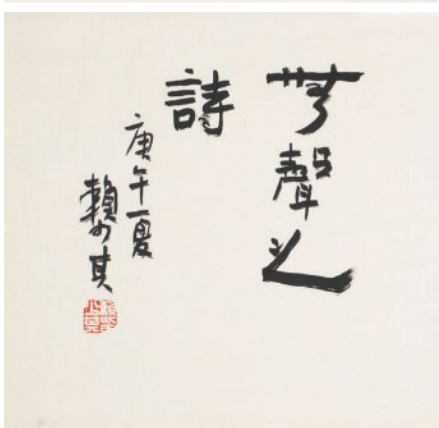 無聲之
詩
庚午夏
賴少其